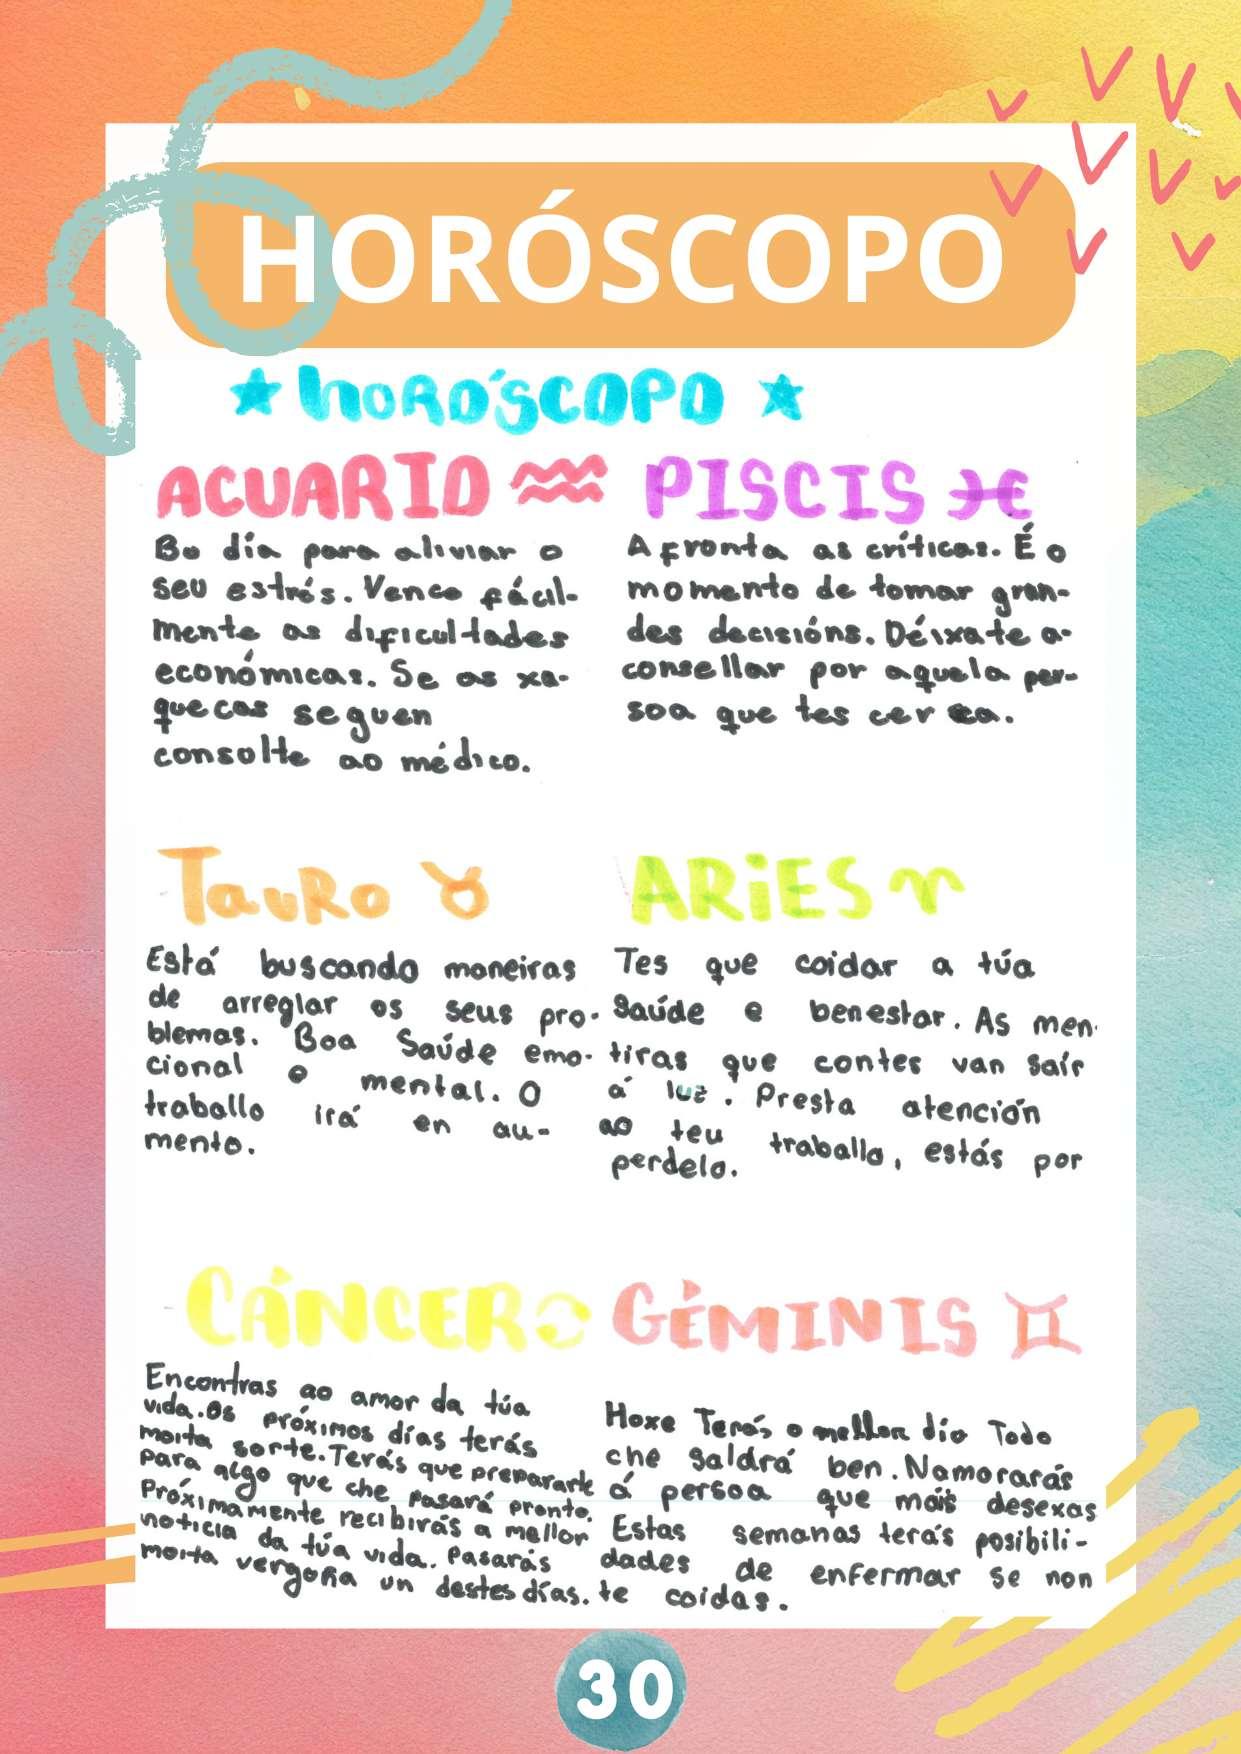 HORÓSCOPO
HORÓSCOPO
ACUARIO
Bo día para aliviar o
seu estrés. Vence fácil-
mente as dificultades
económicas. Se as xa-
quecas seguen
consolte ao médico.
PISCIS
Afronta as críticas. É o
momento de tomar gran-
des decisións. Déixate a-
consellar por aquela per-
soa que tes cerca.
TauRo
Está buscando maneiras
de arreglar os seus pro-
blemas. Boa Saúde emo-
cional e mental. O
traballo irá en au-
mento.
ARiES
Tes que coidar a túa
Saúde e benestar. As men-
tiras que contes van saír
á luz. Presta atención
ao teu traballo, estás por
perdelo.
CÁNCER
Encontras ao amor da túa
vida. Os próximos días terás
moita sorte. Terás que prepararte
para algo que che pasará pronto.
Próximamente recibirás a mellor
noticia da túa vida. Pasarás
moita vergoña un destes días.
GÉMINIS
Hoxe Terás o mellor día Todo
che saldrá ben. Namorarás
á persoa que máis desexas
Estas semanas terás posibili-
dades de enfermar se non
te coidas.
30